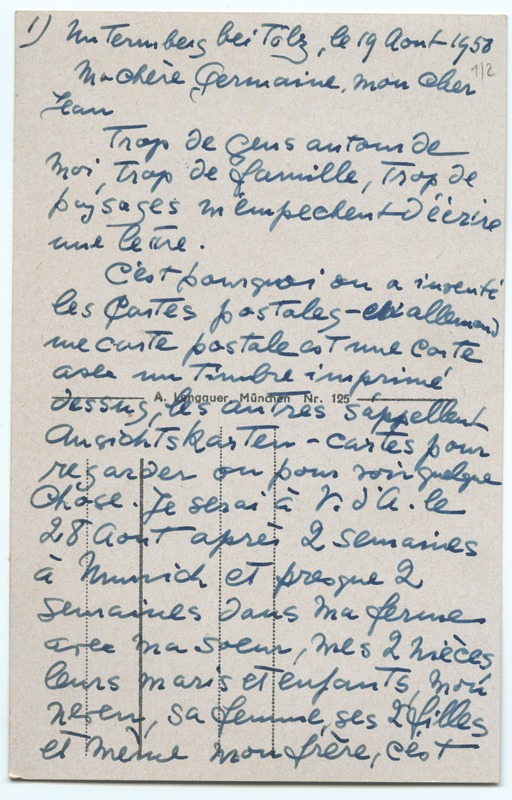 1) Unterm berg bei Tölz, le 19 Aout 1958
1/2
Ma chère Germaine, mon cher
Jean
Trop de gens autour de
moi, trop de famille, trop de
paysages m'empechent d'écrire
une lettre.
C'est pourquoi on a inventé
les Cartes postales - en allemand
une carte postale est une carte
avec un timbre imprimé
A. Lengauer, München Nr. 125
dessus, les autres s'appellent
Ansichtskarten - cartes pour
regarder ou pour voir quelque
chose. Je serai à V. d'A. le
28 Aout après 2 semaines
à Munich et presque 2
semaines dans ma ferme
avec ma soeur, mes 2 nièces
leurs maris et enfants, mon
neveu, sa femme, ses 2 filles
et même mon frère, c'est